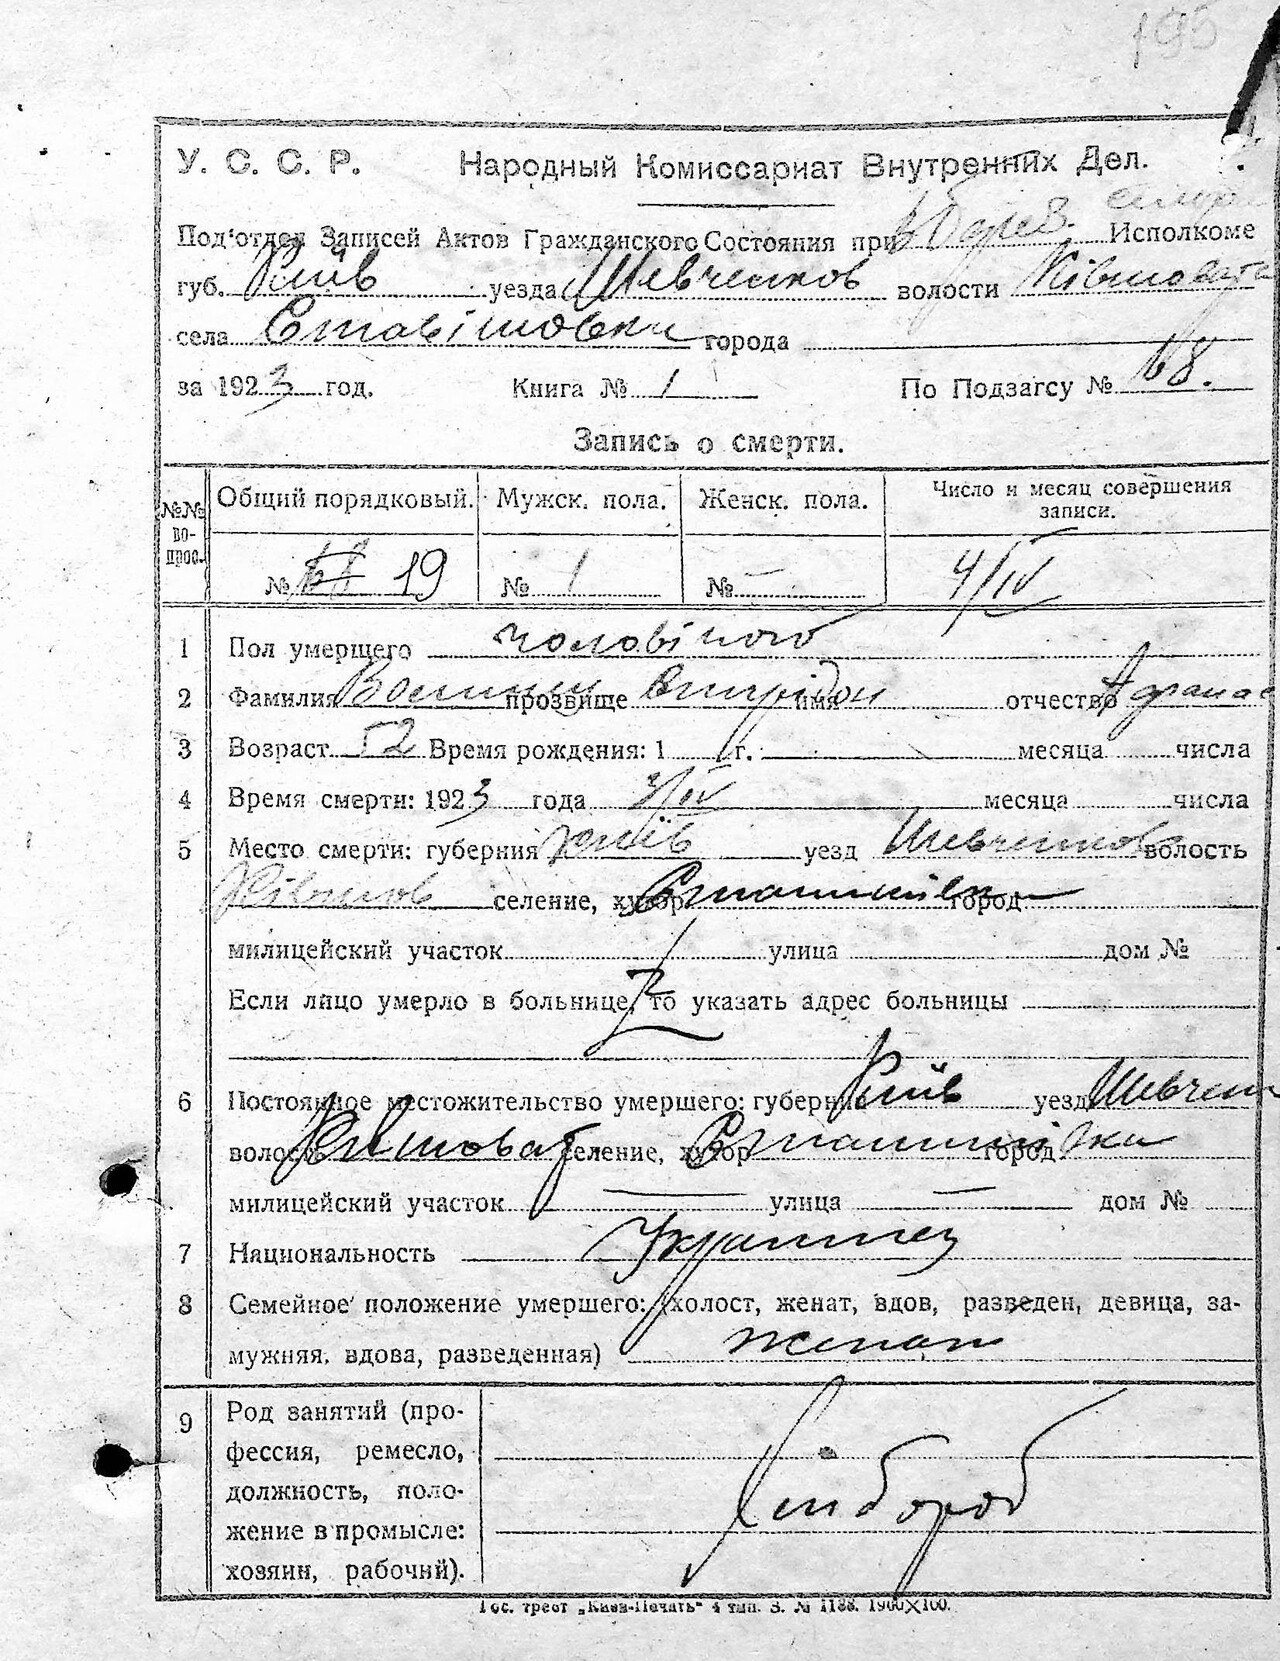 195
У. С. С. Р. Народный Комиссариат Внутренних Дел.
Под'отдел Записей Актов Гражданского Состояния при Исполкоме
губ. Київ уезда Шевченков волости
села Ставішовки города
за 1923 год. Книга № 1 По Подзагсу № 168.
Запись о смерти.
№№ вопрос. Общий порядковый. Мужск. пола. Женск. пола. Число и месяц совершения записи.
№ 19 № 1 № — 4/IV
1 Пол умершего чоловічого
2 Фамилия прозвище имя Спиридон отчество Афанас
3 Возраст 52 Время рождения: 1 г. месяца числа
4 Время смерти: 1923 года 3/IV месяца числа
5 Место смерти: губерния Київ уезд Шевченков волость
селение, хутор город
милицейский участок улица дом №
Если лицо умерло в больнице, то указать адрес больницы
6 Постоянное местожительство умершего: губерния Київ уезд Шевчен
волость селение, хутор город
милицейский участок — улица — дом №
7 Национальность Украинец
8 Семейное положение умершего: (холост, женат, вдов, разведен, девица, за-
мужняя, вдова, разведенная) женат
9 Род занятий (про-
фессия, ремесло,
должность, поло-
жение в промысле:
хозяин, рабочий).
Хлібороб
Гос. трест „Киев-Печать" 4 тип. З. № 1188. 1900×100.